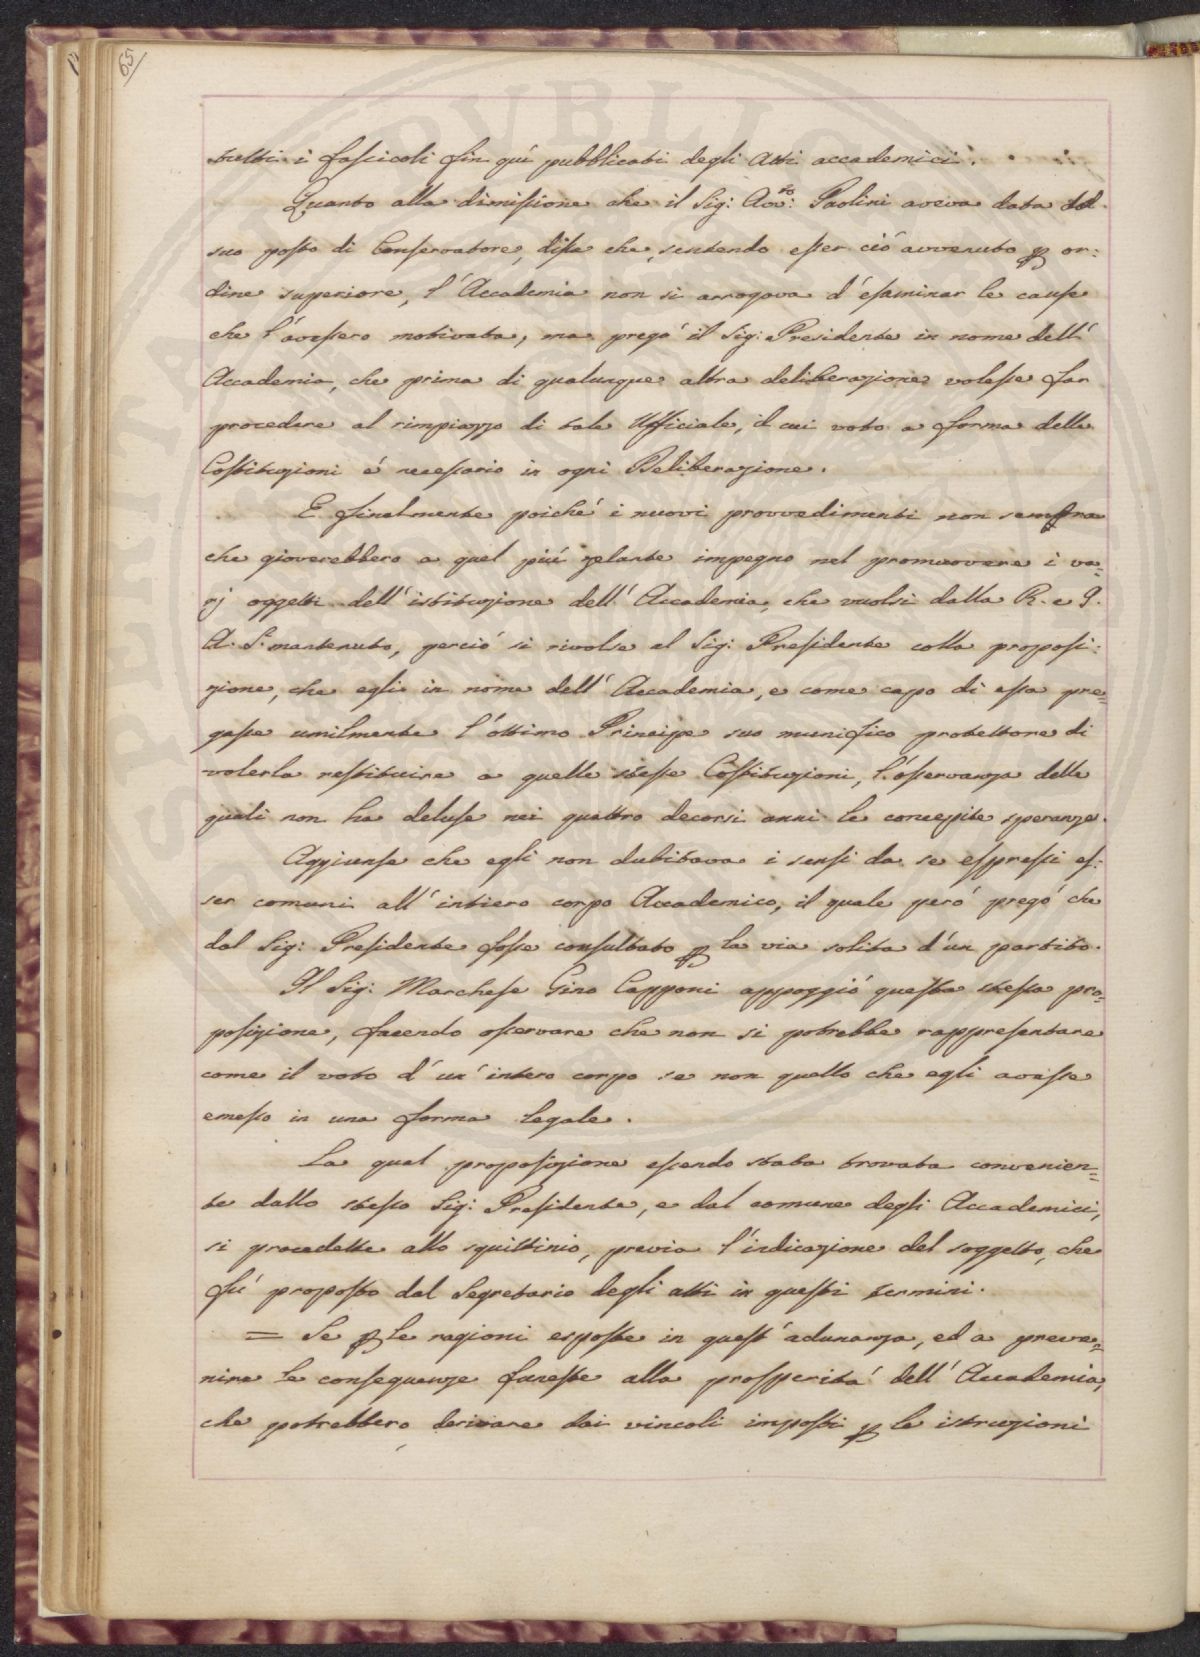 65
stretti i fascicoli fin quì pubblicati degli Atti accademici.
Quanto alla dimissione che il Sig: Avv:to Paolini aveva data del
suo posto di Conservatore, disse che, sentendo esser ciò avvenuto per or:
dine superiore, l'Accademia non si arrogava d'esaminar le cause
che l'avessero motivata, ma pregò il Sig: Presidente in nome dell'
Accademia, che prima di qualunque altra deliberazione volesse far
procedere al rimpiazzo di tale Ufficiale, il cui voto a forma delle
Costituzioni è necessario in ogni Deliberazione.
E finalmente poiché i nuovi provvedimenti non sembra
che gioverebbero a quel più zelante impegno nel promuovere i va=
rj oggetti dell'istituzione dell'Accademia, che vuolsi dalla R. e I.
A. S. mantenuto, perciò si rivolse al Sig: Presidente colla proposi:
zione, che egli in nome dell'Accademia, e come capo di essa pre=
gasse umilmente l'ottimo Principe suo munifico protettore di
volerla restituire a quelle stesse Costituzioni, l'osservanza delle
quali non ha deluse nei quattro decorsi anni le concepite speranze.
Aggiunse che egli non dubitava i sensi da se espressi es:
ser comuni all'intiero corpo Accademico, il quale però pregò che
dal Sig: Presidente fosse consultato per la via solita d'un partito.
Il Sig: Marchese Gino Capponi appoggiò questa stessa pro=
posizione, facendo osservare che non si potrebbe rappresentare
come il voto d'un'intero corpo se non quello che egli avesse
emesso in una forma legale.
La qual proposizione essendo stata trovata convenien=
te dallo stesso Sig: Presidente, e dal comune degli Accademici,
si procedette allo squittinio, previa l'indicazione del soggetto, che
fù proposto dal Segretario degli atti in questi termini.
= Se per le ragioni esposte in quest'adunanza, ed a preve=
nire le conseguenze funeste alla prosperità dell'Accademia,
che potrebbero derivare dai vincoli imposti per le istruzioni